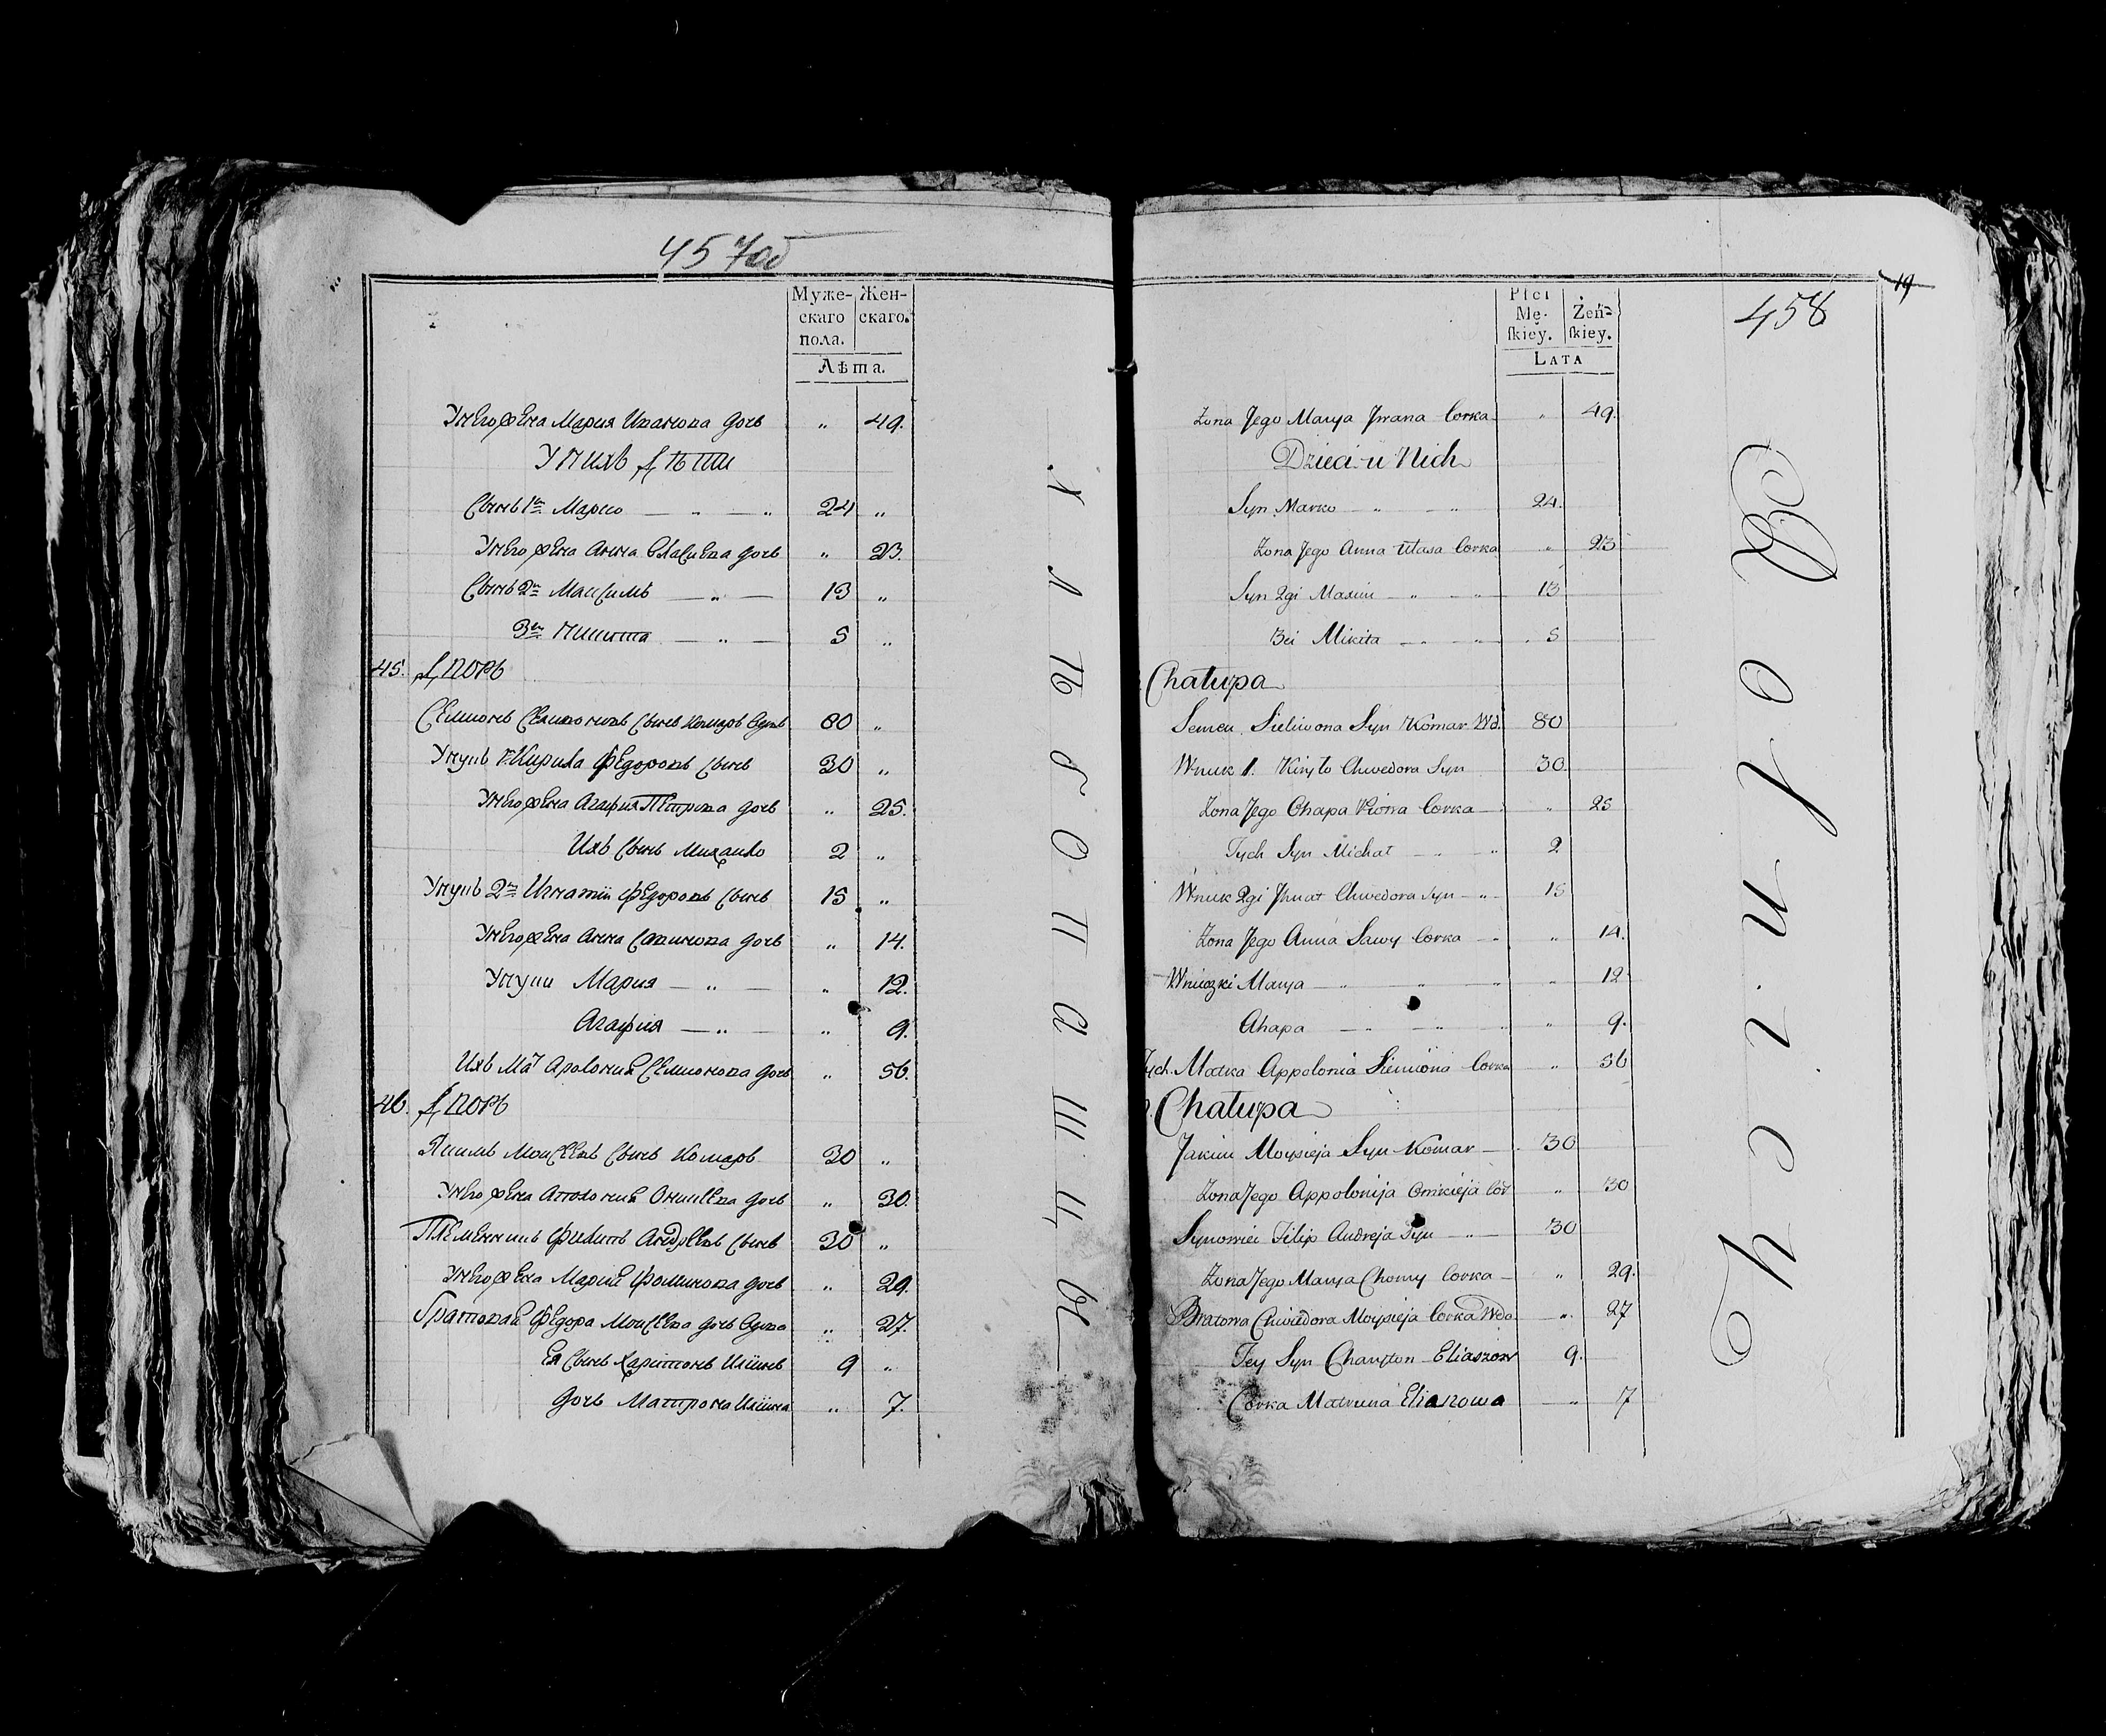 457об
Муже- Жен-
скаго скаго.
пола.
Лѣта.
У него жена Мария Иванова дочь " 49.
У них дѣти
Сынъ 1й Марко — " — " 24 "
У него жена Анна Власиева дочь " 23.
Сынъ 2й Максимъ — " — 13 "
3й Микита — " — 5 "
45. дворъ
Семионъ Селивоновъ сынъ Комаръ вдовъ 80 "
Унукъ 1. Кирила Федоровъ сынъ 30 "
У него жена Агафия Петрова дочь " 25.
Ихъ сынъ Михаило 2 "
Унукъ 2й Игнатій Федоровъ сынъ 15 "
У него жена Анна Савинова дочь " 14.
Унуки Мария — " — " 12.
Агафия — " — " 9.
Ихъ мат Аполония Семионова дочь " 56.
46. дворъ
Якимъ Моисеевъ сынъ Комаръ 30 "
У него жена Аполония Оникиева дочь " 30.
Племенникъ Филипъ Андреевъ сынъ 30 "
У него жена Мария Фоминова дочь " 29.
Братовая Федора Моисеева дочь вдова " 27.
Ея сынъ Харитонъ Илiинъ 9 "
дочь Матрона Илiина " 7.
Хлѣбопашцы
458
19
Płci
Mę- Żeń-
ſkiey. ſkiey.
LATA
Żona Jego Marya Jwana Corka " 49.
Dzieci u Nich
Syn Marko — " — " 24.
Żona Jego Anna Ułasa Corka " 23
Syn 2gi Maxim — " — " 13
3ci Mikita — " — " 5
Chałupa
Semen Sieliwona Syn Komar Wd. 80
Wnuk 1. Kiryło Chwedora Syn 30.
Żona Jego Ohapa Piotra Corka — " 25
Tych Syn Michał — " 2
Wnuk 2gi Jhnat Chwedora Syn — " 15
Żona Jego Anna Sawy Corka — " 14.
Wnuczki Marya — " " " 12
Ahapa — " — " " 9.
Tych Matka Appolonia Siemiona Corka " 56
Chałupa
Jakim Moysieja Syn Komar — 30
Żona Jego Appolonija Onikieja Cor " 30
Synowiec Filip Andreja Syn — " — 30
Żona Jego Marya Chomy Corka — " 29.
Bratowa Chwedora Moysieja Corka Wdo. " 27
Jey Syn Charyton Eliaszow 9.
Corka Matruna Eliaszowa — " 7
Rolnicy